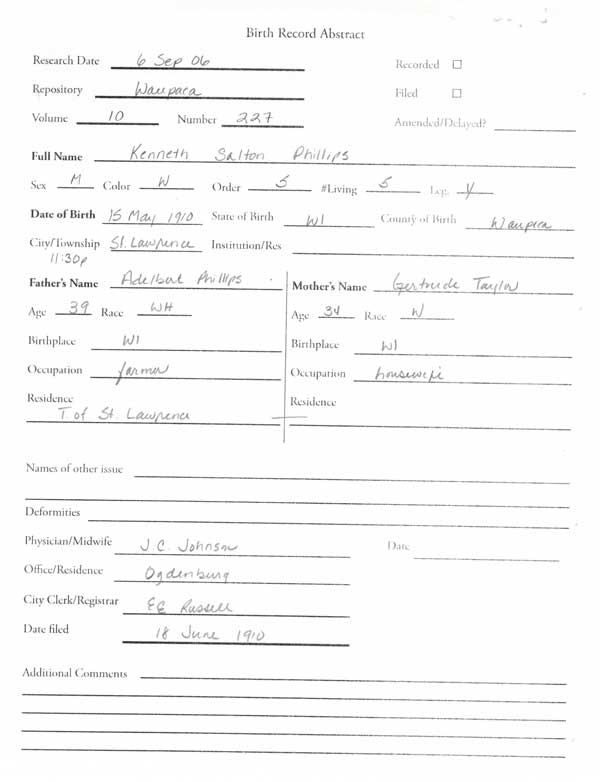 Birth Record Abstract
Research Date 6 Sep 06 Recorded ☐
Repository Waupaca Filed ☐
Volume 10 Number 227 Amended/Delayed?
Full Name Kenneth Salton Phillips
Sex M Color W Order 5 #Living 5 Leg. Y
Date of Birth 15 May 1910 State of Birth WI County of Birth Waupaca
City/Township St. Lawrence Institution/Res
11:30p
Father's Name Adelbert Phillips Mother's Name Gertrude Taylor
Age 39 Race WH Age 34 Race W
Birthplace WI Birthplace WI
Occupation farmer Occupation housewife
Residence Residence
T. of St. Lawrence —
Names of other issue
Deformities
Physician/Midwife J.C. Johnson Date
Office/Residence Ogdenburg
City Clerk/Registrar EE Russell
Date filed 18 June 1910
Additional Comments